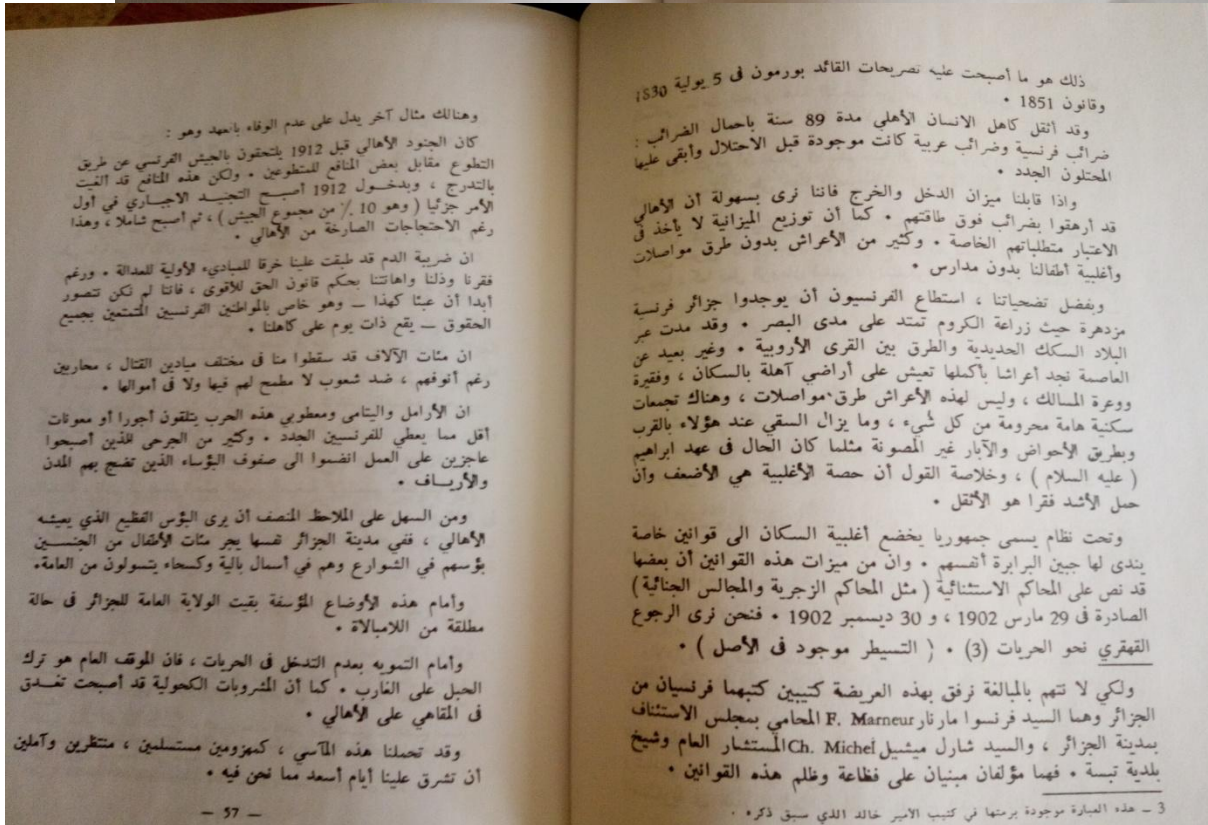 ذلك هو ما أصبحت عليه تصريحات القائد بورمون فى 5 يولية 1830
وقانون 1851 •
وقد أثقل كاهل الانسان الأهلي مدة 89 سنة باحمال الضرائب :
ضرائب فرنسية وضرائب عربية كانت موجودة قبل الاحتلال وأبقى عليها
المحتلون الجدد •
واذا قابلنا ميزان الدخل والخرج فاننا نرى بسهولة أن الأهالي
قد أرهقوا بضرائب فوق طاقتهم • كما أن توزيع الميزانية لا يأخذ فى
الاعتبار متطلباتهم الخاصة • وكثير من الأعراش بدون طرق مواصلات
وأغلبية أطفالنا بدون مدارس •
وبفضل تضحياتنا ، استطاع الفرنسيون أن يوجدوا جزائر فرنسية
مزدهرة حيث زراعة الكروم تمتد على مدى البصر • وقد مدت عبر
البلاد السكك الحديدية والطرق بين القرى الأروبية • وغير بعيد عن
العاصمة نجد أعراشا بأكملها تعيش على أراضي آهلة بالسكان ، وفقيرة
ووعرة المسالك ، وليس لهذه الأعراش طرق مواصلات ، وهناك تجمعات
سكنية هامة محرومة من كل شيء ، وما يزال السقي عند هؤلاء بالقرب
وبطريق الأحواض والآبار غير المصونة مثلما كان الحال فى عهد ابراهيم
( عليه السلام ) ، وخلاصة القول أن حصة الأغلبية هي الأضعف وأن
حمل الأشد فقرا هو الأثقل •
وتحت نظام يسمى جمهوريا يخضع أغلبية السكان الى قوانين خاصة
يندى لها جبين البرابرة أنفسهم • وان من ميزات هذه القوانين أن بعضها
قد نص على المحاكم الاستثنائية ( مثل المحاكم الزجرية والمجالس الجنائية )
الصادرة فى 29 مارس 1902 ، و 30 ديسمبر 1902 • فنحن نرى الرجوع
القهقري نحو الحريات (3) • ( التسيطر موجود فى الأصل ) •
ولكي لا نتهم بالمبالغة نرفق بهذه العريضة كتيبين كتبهما فرنسيان من
الجزائر وهما السيد فرنسوا مارنار F. Marneur المحامي بمجلس الاستئناف
بمدينة الجزائر ، والسيد شارل ميشيل Ch. Michel المستشار العام وشيخ
بلدية تبسة • فهما مؤلفان مبنيان على فظاعة وظلم هذه القوانين •
3 ـ هذه العبارة موجودة برمتها في كتيب الأمير خالد الذي سبق ذكره •
وهنالك مثال آخر يدل على عدم الوفاء بالعهد وهو :
كان الجنود الأهالي قبل 1912 يلتحقون بالجيش الفرنسي عن طريق
التطوع مقابل بعض المنافع للمتطوعين • ولكن هذه المنافع قد ألغيت
بالتدرج ، وبدخول 1912 أصبح التجنيد الاجباري في أول
الأمر جزئيا ( وهو 10 ٪ من مجموع الجيش ) ، ثم أصبح شاملا ، وهذا
رغم الاحتجاجات الصارخة من الأهالي •
ان ضريبة الدم قد طبقت علينا خرقا للمباديء الأولية للعدالة • ورغم
فقرنا وذلنا واهانتنا بحكم قانون الحق للأقوى ، فاننا لم نكن نتصور
أبدا أن عبئا كهذا ـ وهو خاص بالمواطنين الفرنسيين المتمتعين بجميع
الحقوق ـ يقع ذات يوم على كاهلنا •
ان مئات الآلاف قد سقطوا منا فى مختلف ميادين القتال ، محاربين
رغم أنوفهم ، ضد شعوب لا مطمح لهم فيها ولا فى أموالها •
ان الأرامل واليتامى ومعطوبي هذه الحرب يتلقون أجورا أو معونات
أقل مما يعطي للفرنسيين الجدد • وكثير من الجرحى الذين أصبحوا
عاجزين على العمل انضموا الى صفوف البؤساء الذين تضج بهم المدن
والأرياف •
ومن السهل على الملاحظ المنصف أن يرى البؤس الفظيع الذي يعيشه
الأهالي ، ففي مدينة الجزائر نفسها يجر مئات الأطفال من الجنسين
بؤسهم في الشوارع وهم في أسمال بالية وكسحاء يتسولون من العامة•
وأمام هذه الأوضاع المؤسفة بقيت الولاية العامة للجزائر فى حالة
مطلقة من اللامبالاة •
وأمام التمويه بعدم التدخل فى الحريات ، فان الموقف العام هو ترك
الحبل على الغارب • كما أن المشروبات الكحولية قد أصبحت تغدق
فى المقاهي على الأهالي •
وقد تحملنا هذه المآسي ، كمهزومين مستسلمين ، منتظرين وآملين
أن تشرق علينا أيام أسعد مما نحن فيه •
ـ 57 ـ